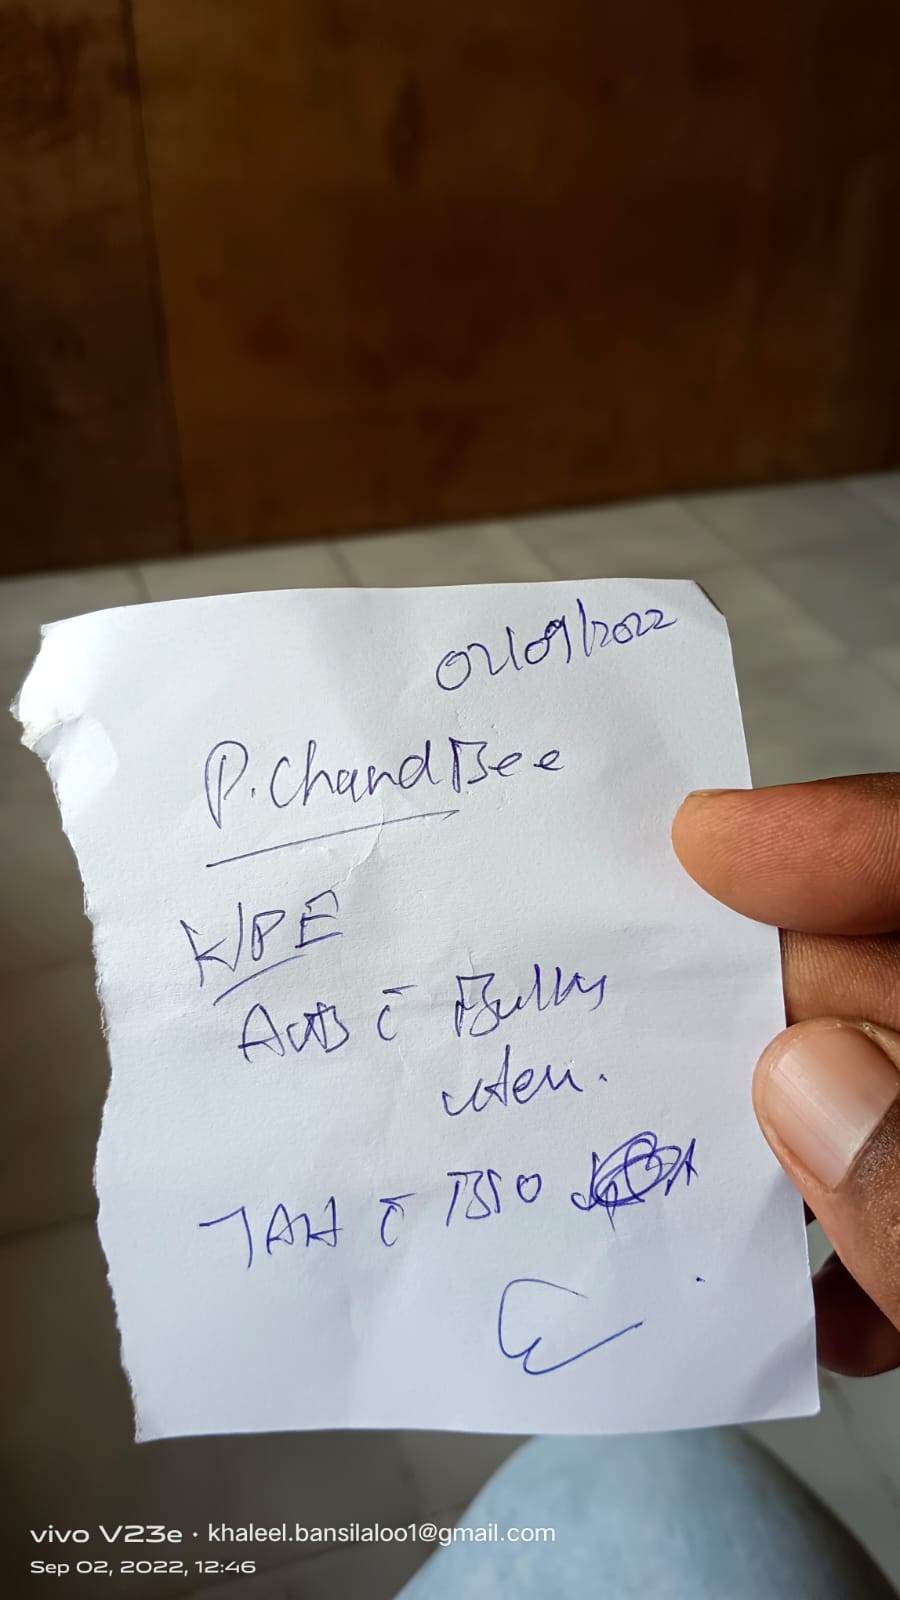 02/09/2022
P. Chand Bee
K/P E
AUB c̄ Bulky
uteri.
TAH c̄ BSO
vivo V23e · khaleel.bansilaloo1@gmail.com
Sep 02, 2022, 12:46